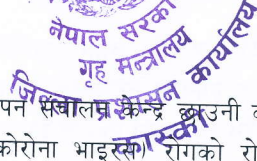 नेपाल सरकार
गृह मन्त्रालय
जिल्ला प्रशासन कार्यालय
कास्की
पन संचालन केन्द्र छाउनी
कोरोना भाइरस) रोगको रो